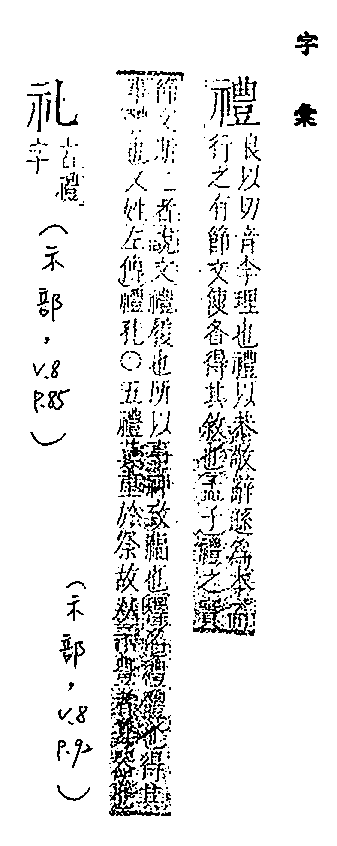 字彙
禮
良以切音李理也禮以恭敬辭遜為本而
行之有節文使各得其敘也孟子禮之實
節文斯二者說文禮履也所以事神致福也釋名禮體也得其
事體也又姓左傳禮孔〇五禮莫重於祭故从示豊者其器
(示部, v.8 p.92)
礼
古禮
字
(示部, v.8 p.85)